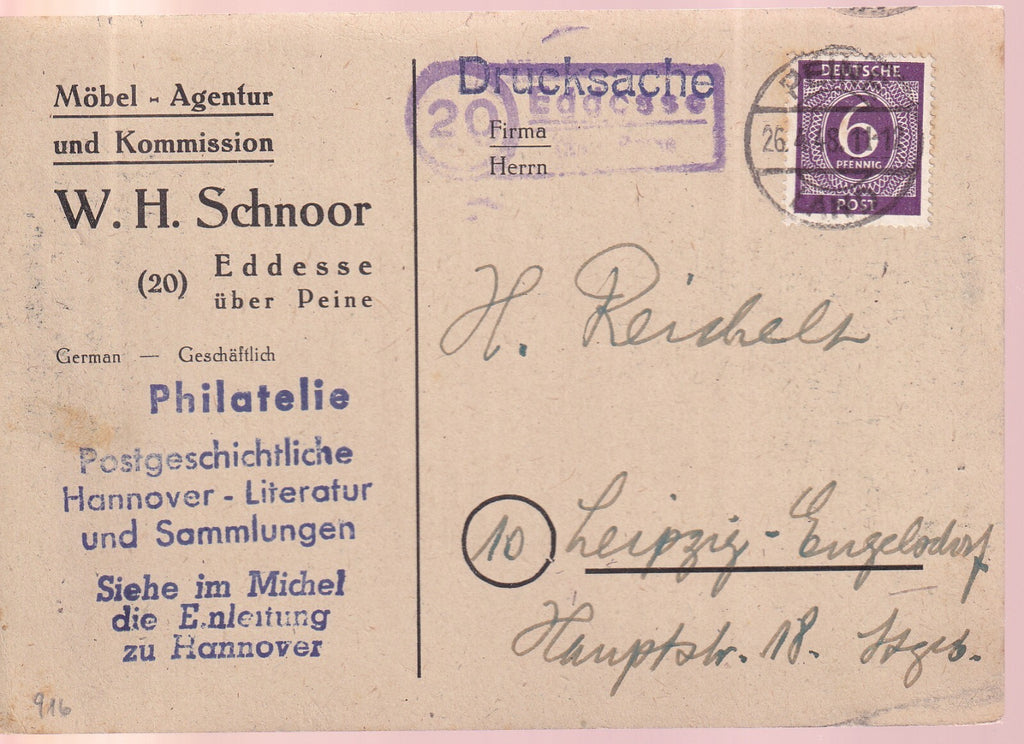 Möbel - Agentur
und Kommission
W. H. Schnoor
(20) Eddesse
über Peine
German — Geschäftlich
Philatelie
Postgeschichtliche
Hannover - Literatur
und Sammlungen
Siehe im Michel
die Enleitung
zu Hannover
916
Drucksache
20 Eddesse
Firma
Herrn
DEUTSCHE
6
PFENNIG
POST
H. Reichelt
10 Leipzig - Engelsdorf
Hauptstr. 18.